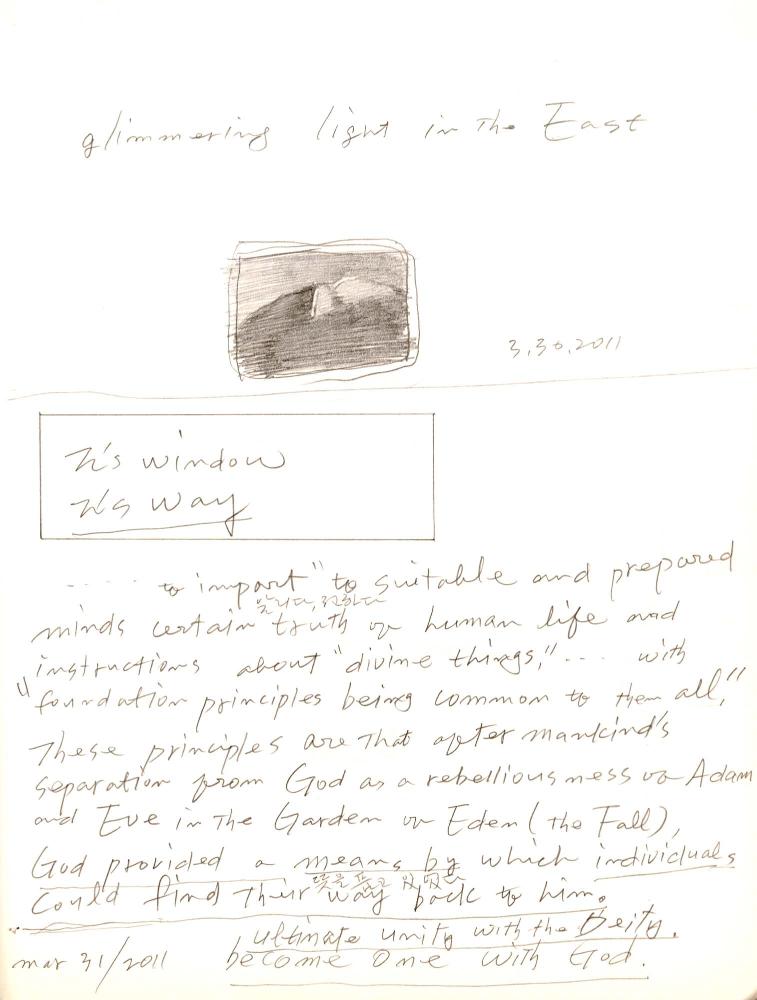 glimmering light in The East
3.30.2011
window
way
..... to impart" to suitable and prepared
알리다, 전하다
minds certain truth of human life and
instructions about "divine things," ... with
"foundation principles being common to them all,"
These principles are That after mankind's
separation from God as a rebelliousness of Adam
and Eve in The Garden of Eden (the Fall),
God provided a means by which individuals
뜻을 품고
could find Their way back to him.
ultimate unity with the Deity.
mar 31/2011 become One with God.